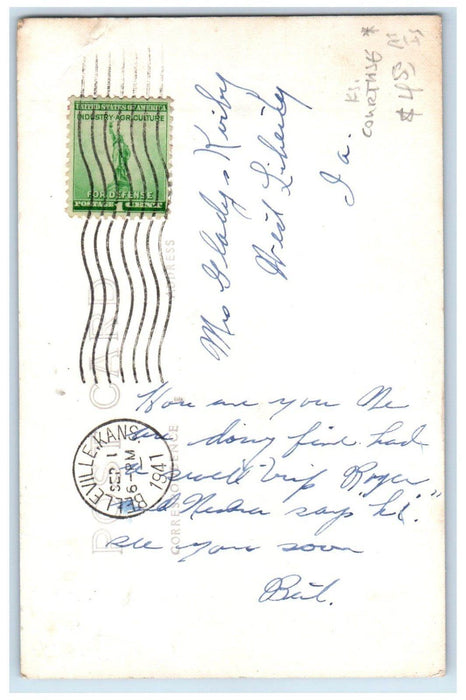 UNITED STATES OF AMERICA
INDUSTRY-AGRICULTURE
FOR DEFENSE
POSTAGE 1 CENT
KS.
COURTHSE *
$45
Mrs Gladys Kirby
West Liberty
Ia.
POST CARD
CORRESPONDENCE
ADDRESS
BELLEVILLE, KANS.
SEP 1
6-PM
1941
How are you We
are doing fine had
a swell trip Roger
and Nedra says "hi".
see you soon